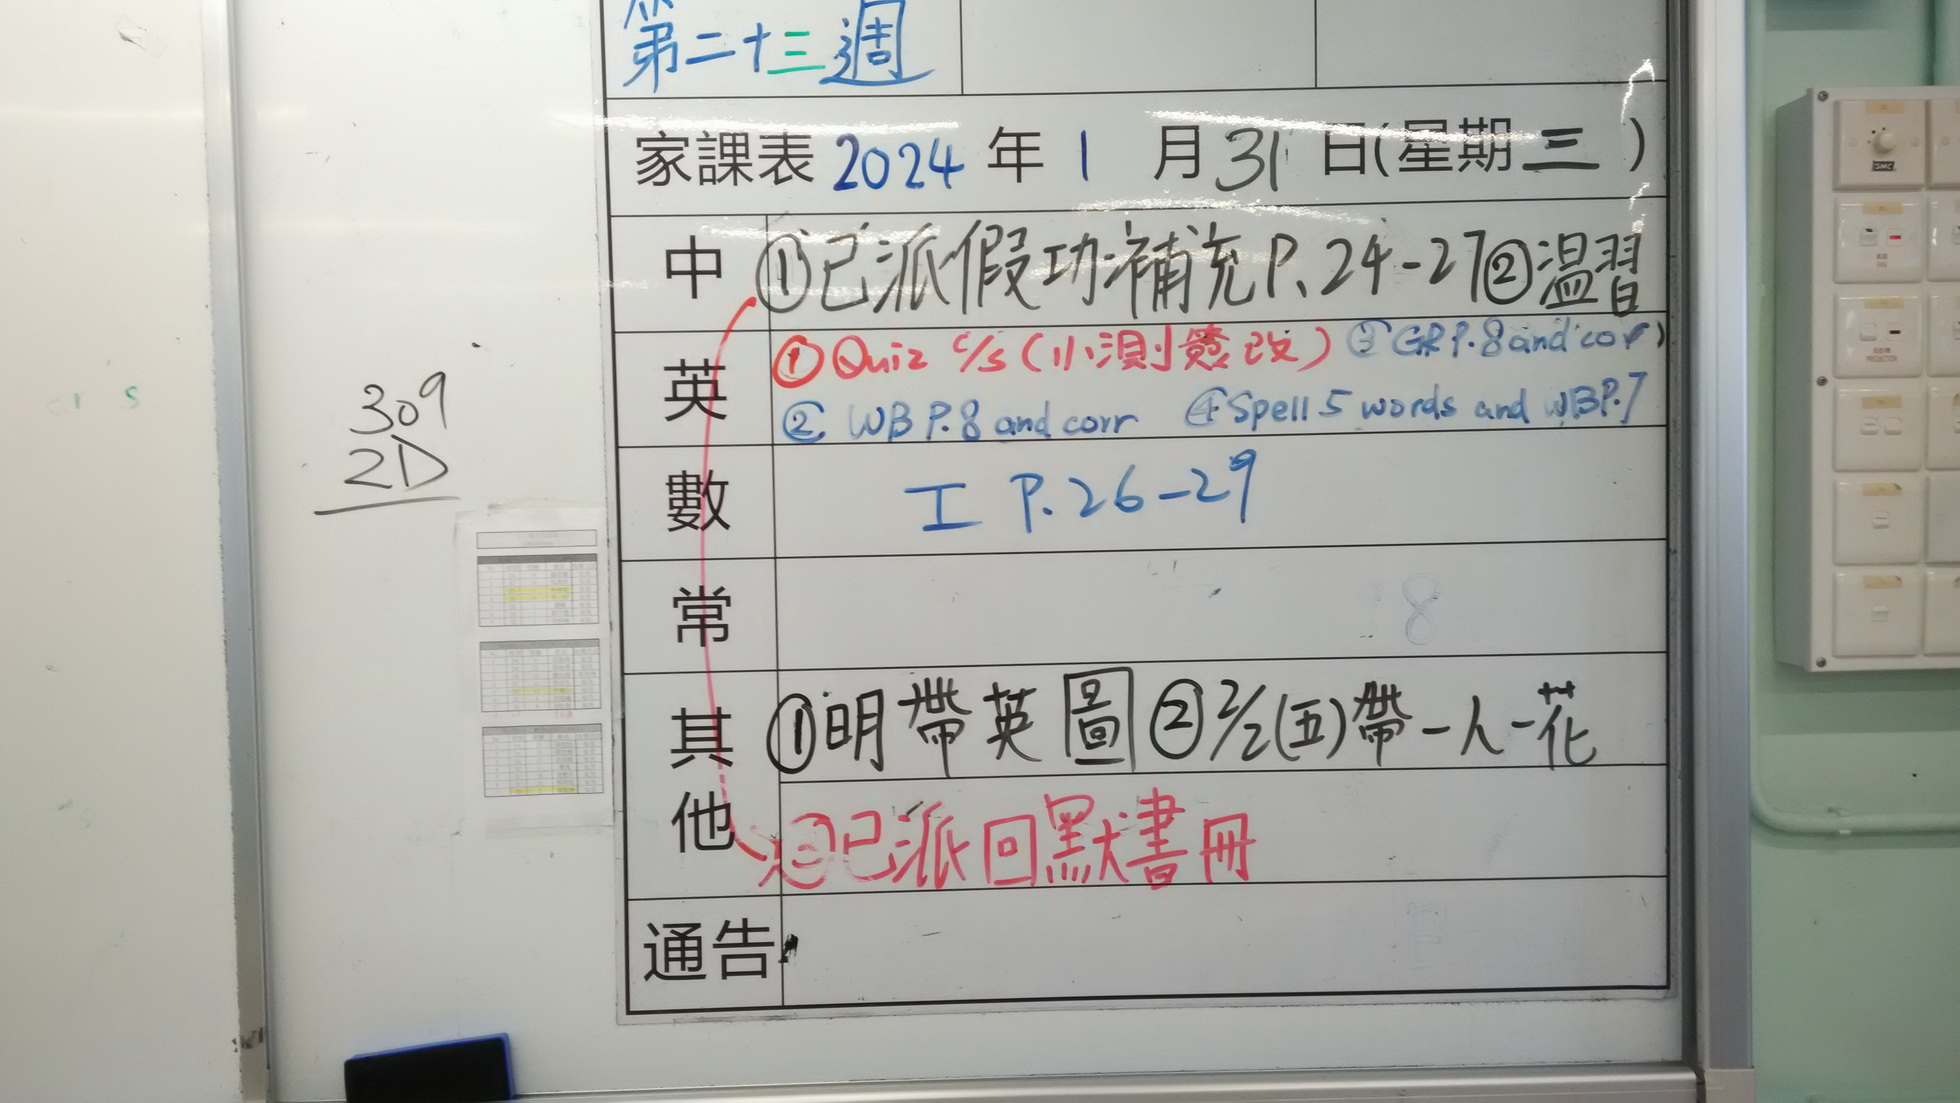 第二十三週
家課表 2024 年 1 月 31 日(星期三)
中 ①已派假功補充P.24-27②溫習
英 ①Quiz c/s(小測簽改) ③GR P.8 and corr
② WB P.8 and corr ④Spell 5 words and WB P.7
數 工 P.26-29
常
其他 ①明帶英圖②2/2(五)帶一人一花
③已派回默書冊
通告
309
2D